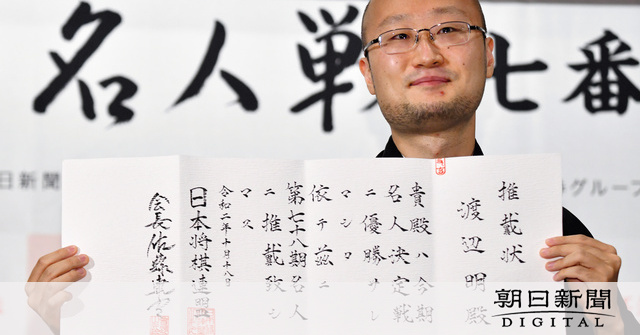 名人戦七番
日新聞
グループ
推戴状
渡辺明殿
貴殿ハ今期
名人決定戦
ニ優勝サレ
マシタ
依テ茲ニ
第七十八期名人
ニ推戴致シ
マス
令和二年十月十八日
日本将棋連盟
会長佐藤康光
朝日新聞
DIGITAL